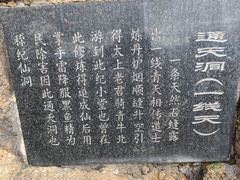 通天洞(一线天)
一条天然石缝露
出一线青天相传道士
炼丹炉烟顺缝升空引
得太上老君骑青牛北
游到此纪小堂也曾在
此修炼得道成仙后用
掌手雷降服黑鱼精为
民除害因此通天洞也
称纪仙洞